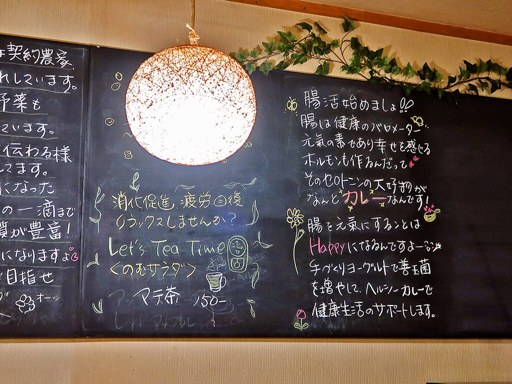 な契約農家
れしています。
野菜も
ています。
伝わる様
てます。
になった
の一滴まで
質が豊富!
になりますよ
を目指せ
オーッ
消化促進、疲労回復
リラックスしませんか?
Let's Tea Time
<のむサラダ>
マテ茶 150-
腸活始めましょ!!
腸は健康のバロメーター
元気の素であり幸せを感じる
ホルモンも作るんだって
そのセロトニンの大好物が
なんとカレーなんです!
腸を元気にすることは
Happyになるんですよー
手づくりヨーグルトで善玉菌
を増やして、ヘルシーカレーで
健康生活のサポートします。